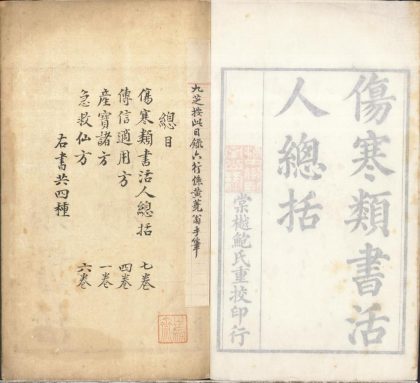 傷寒類書活
人總括
棠樾鮑氏重挍印行
九芝按此目錄六行係黃蕘翁手筆
總目
傷寒類書活人總括 七卷
傳信適用方 四卷
產寶諸方 一卷
急救仙方 六卷
右書共四種